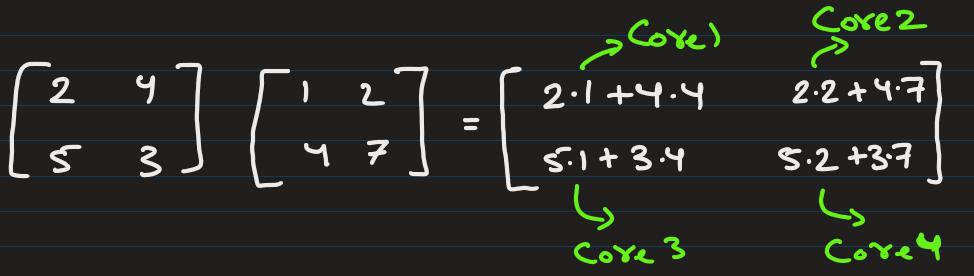 Core1 Core2
2 4 1 2 = 2·1+4·4 2·2+4·7
5 3 4 7 5·1+3·4 5·2+3·7
Core3 Core4